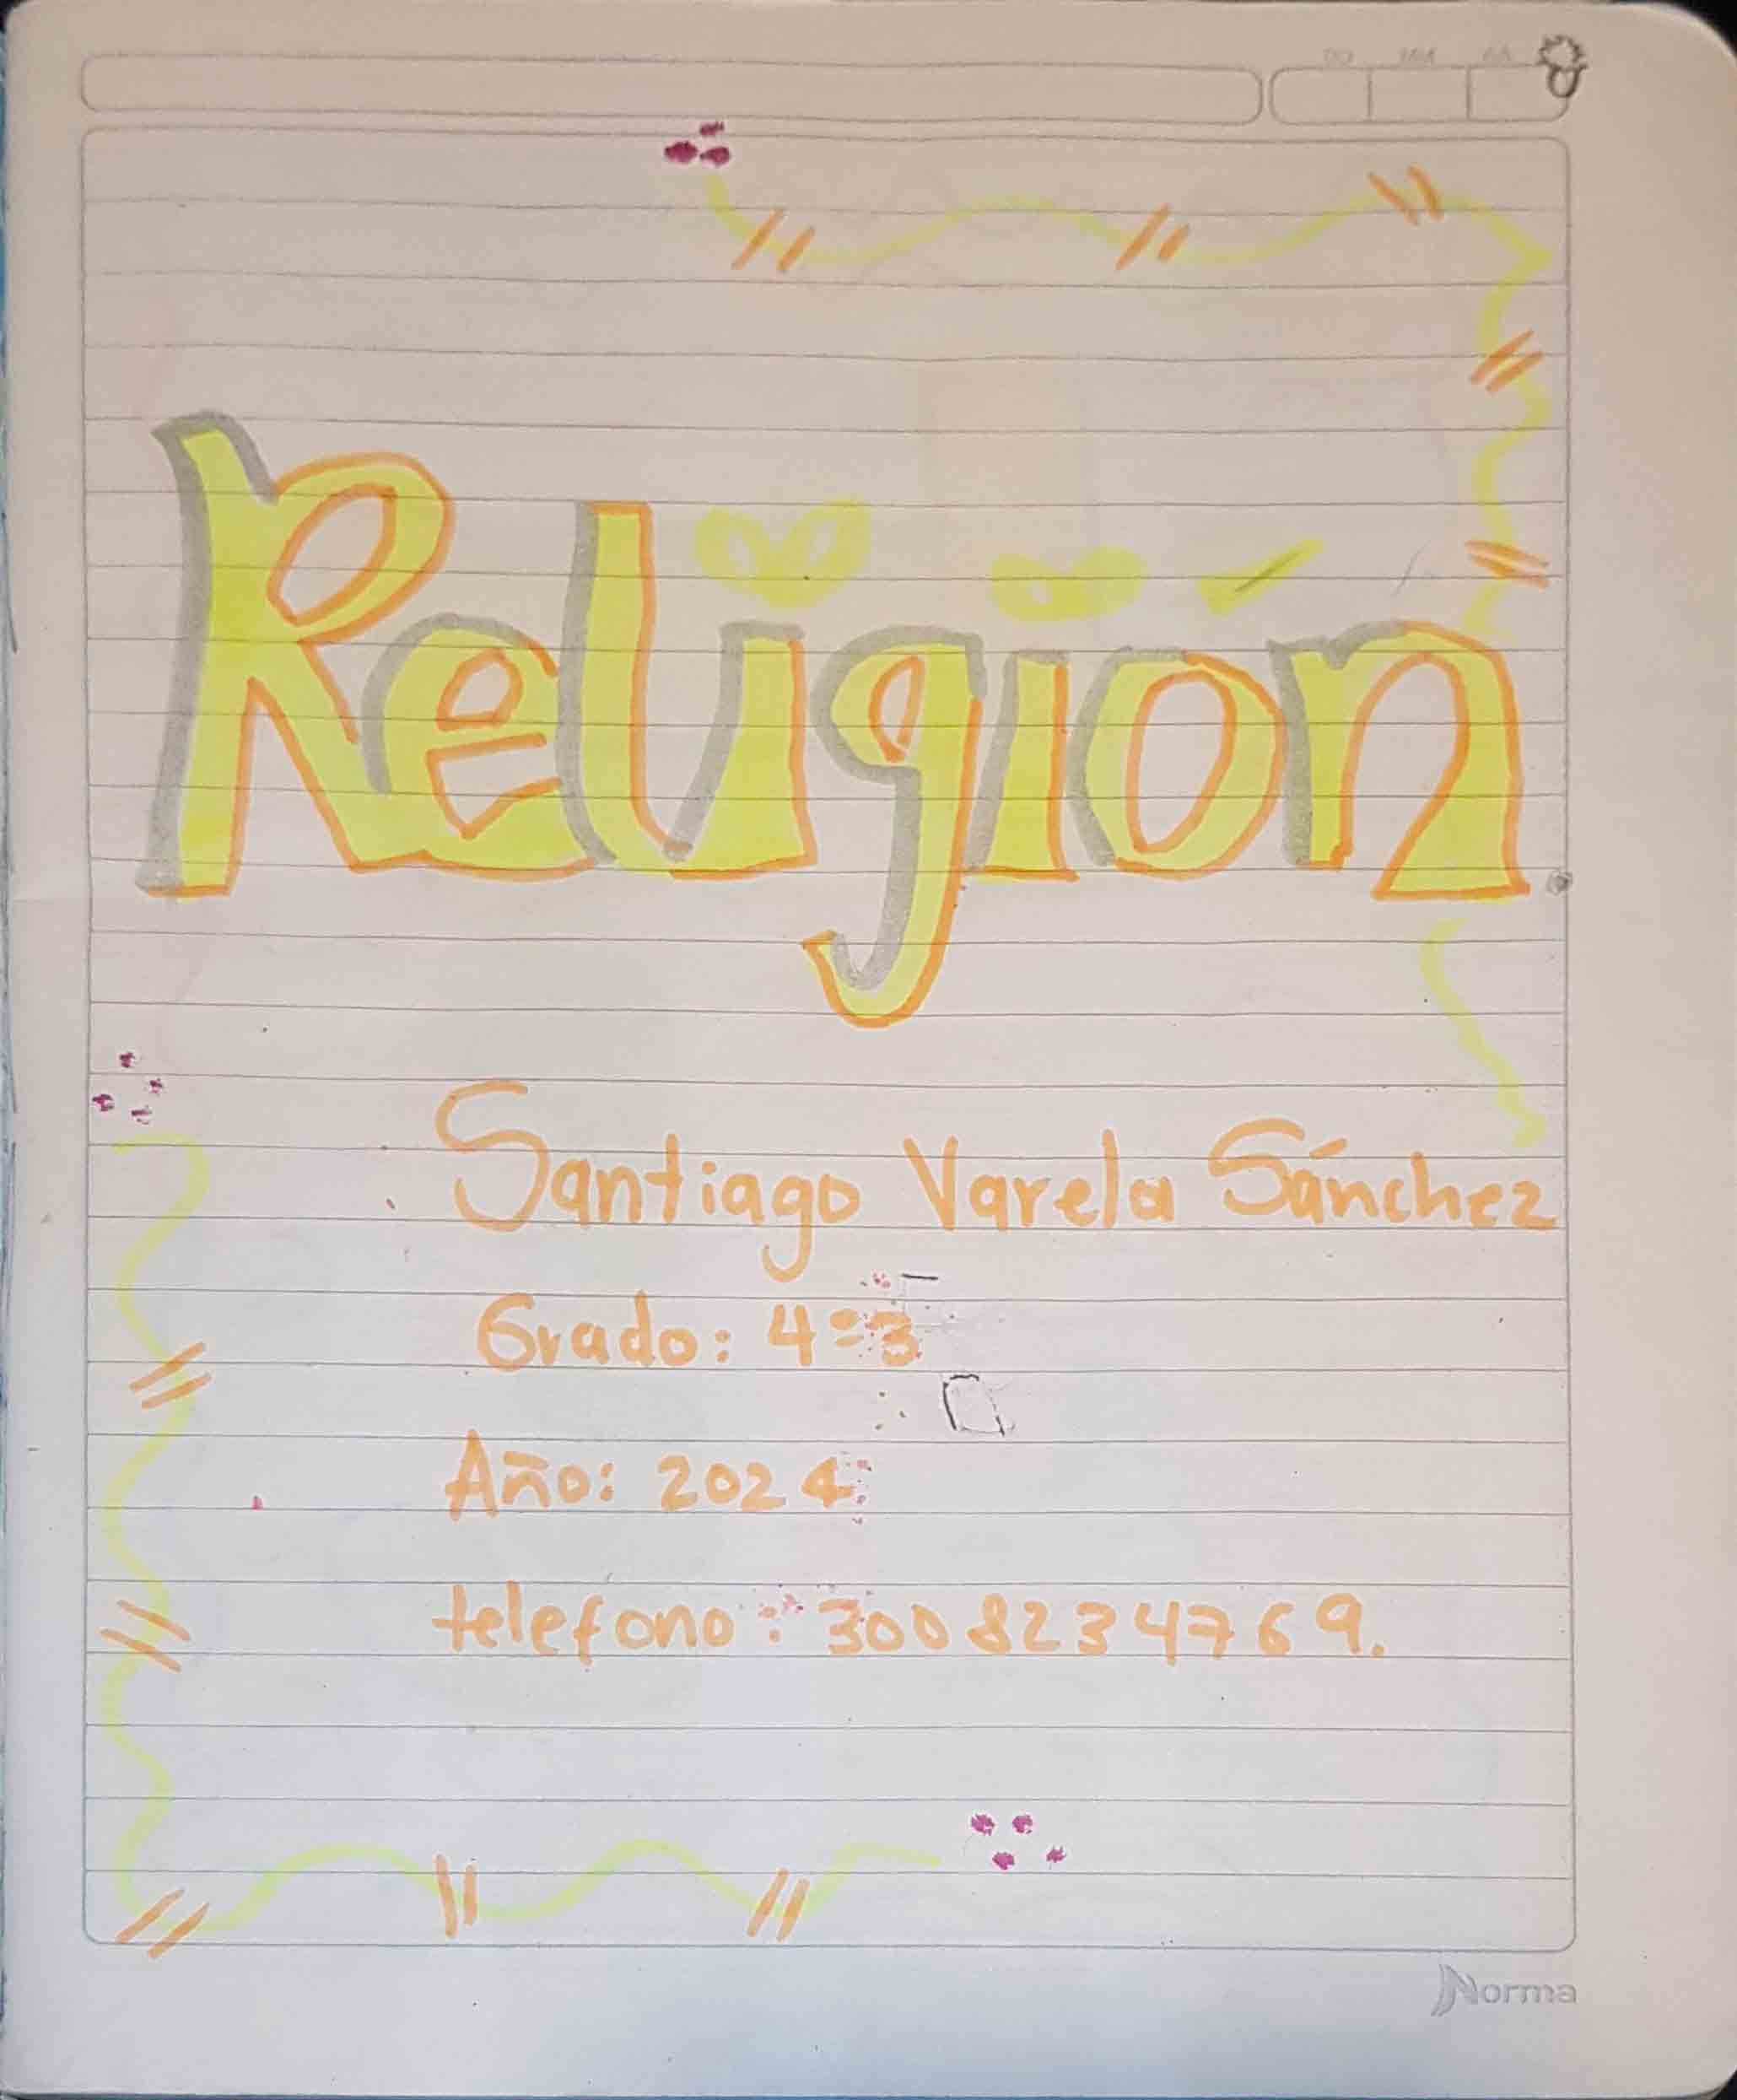 DD MM AA
Religión
Santiago Varela Sánchez
Grado: 4=3
Año: 2024
telefono: 3008234769.
Norma